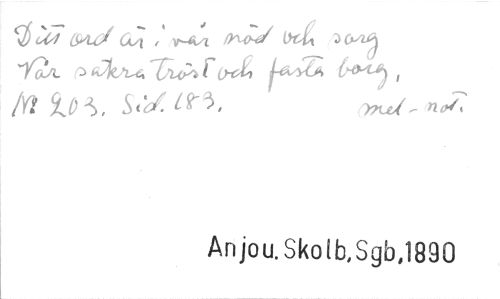 Ditt ord är i vår nöd och sorg
Vår säkra tröst och fasta borg,
No 203. Sid. 183. mel-not.
Anjou. Skolb, Sgb, 1890